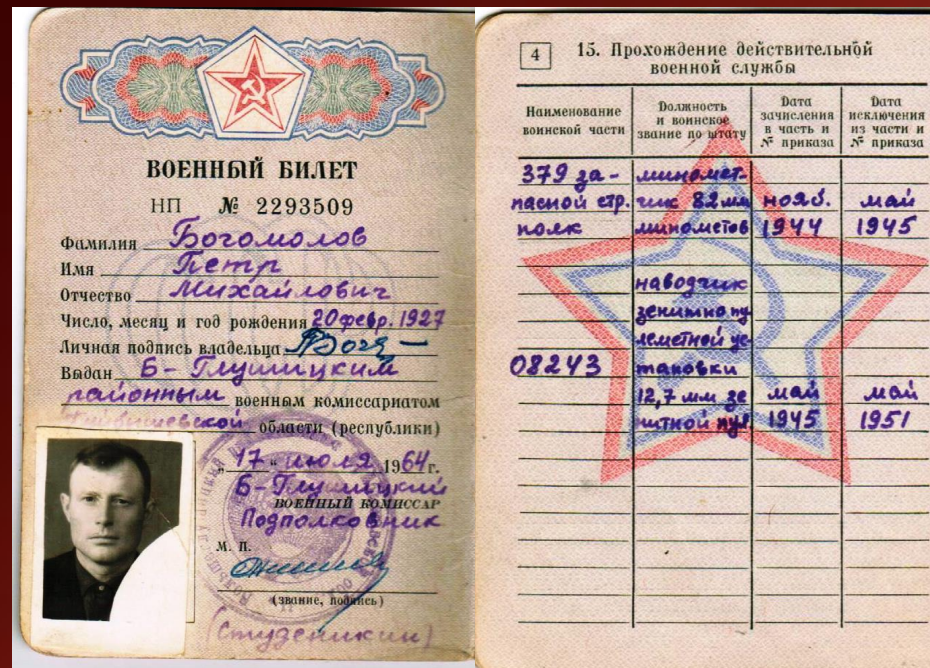 ВОЕННЫЙ БИЛЕТ
НП № 2293509
Фамилия Богомолов
Имя Петр
Отчество Михайлович
Число, месяц и год рождения 20 февр. 1927
Личная подпись владельца
Выдан Б-Глушицким
районным военным комиссариатом
Куйбышевской области (республики)
„17" июля 1964 г.
Б-Глушицкий
ВОЕННЫЙ КОМИССАР
Подполковник
М. П.
(звание, подпись)
(Студеникин)
4 15. Прохождение действительной
военной службы
Наименование воинской части
Должность и воинское звание по штату
Дата зачисления в часть и № приказа
Дата исключения из части и № приказа
379 за-
пасной стр.
полк
миномет-
чик 82 мм
минометов
нояб.
1944
май
1945
08243
наводчик
зенитно пу
леметной ус
тановки
12,7 мм зе
нитной пул
май
1945
май
1951